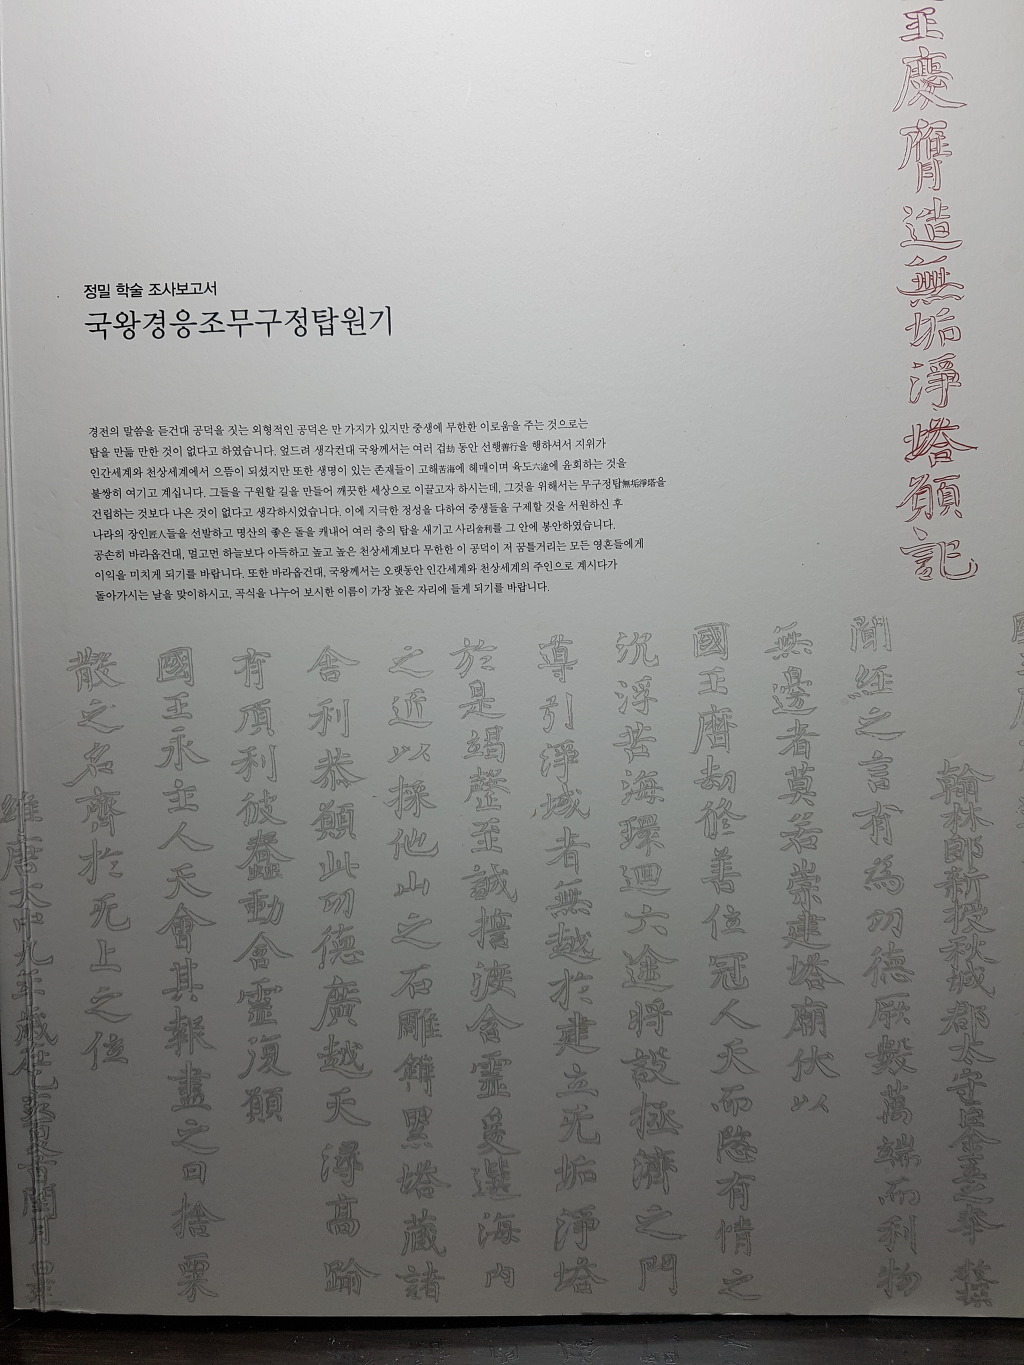 王慶膺造無垢淨塔願記
정밀 학술 조사보고서
국왕경응조무구정탑원기
경전의 말씀을 듣건대 공덕을 짓는 외형적인 공덕은 만 가지가 있지만 중생에 무한한 이로움을 주는 것으로는
탑을 만듦 만한 것이 없다고 하였습니다. 엎드려 생각컨대 국왕께서는 여러 겁劫 동안 선행善行을 행하셔서 지위가
인간세계와 천상세계에서 으뜸이 되셨지만 또한 생명이 있는 존재들이 고해苦海에 헤매이며 육도六途에 윤회하는 것을
불쌍히 여기고 계십니다. 그들을 구원할 길을 만들어 깨끗한 세상으로 이끌고자 하시는데, 그것을 위해서는 무구정탑無垢淨塔을
건립하는 것보다 나은 것이 없다고 생각하시었습니다. 이에 지극한 정성을 다하여 중생들을 구제할 것을 서원하신 후
나라의 장인匠人들을 선발하고 명산의 좋은 돌을 캐내어 여러 층의 탑을 새기고 사리舍利를 그 안에 봉안하였습니다.
공손히 바라옵건대, 멀고먼 하늘보다 아득하고 높고 높은 천상세계보다 무한한 이 공덕이 저 꿈틀거리는 모든 영혼들에게
이익을 미치게 되기를 바랍니다. 또한 바라옵건대, 국왕께서는 오랫동안 인간세계와 천상세계의 주인으로 계시다가
돌아가시는 날을 맞이하시고, 곡식을 나누어 보시한 이름이 가장 높은 자리에 들게 되기를 바랍니다.
翰林郎新授秋城郡太守臣金立之奉
聞経之言有為功德厥數萬端而利物
無邊者莫若崇建塔廟伏以
國王曆劫修善位冠人天而愍有情之
沉浮苦海環迴六途將設拯濟之門
導引淨域者無越於建立無垢淨塔
於是竭罄至誠擔渡含靈爰選海內
之近以採他山之石雕鐫累塔蔵諸
舍利恭願此功德廣越天潯高踰
有頂利彼蠢動含靈復願
國王永主人天會其報盡之日捨粟
散之名齊於无上之位
維唐大中九年歲在乙亥 閏月日